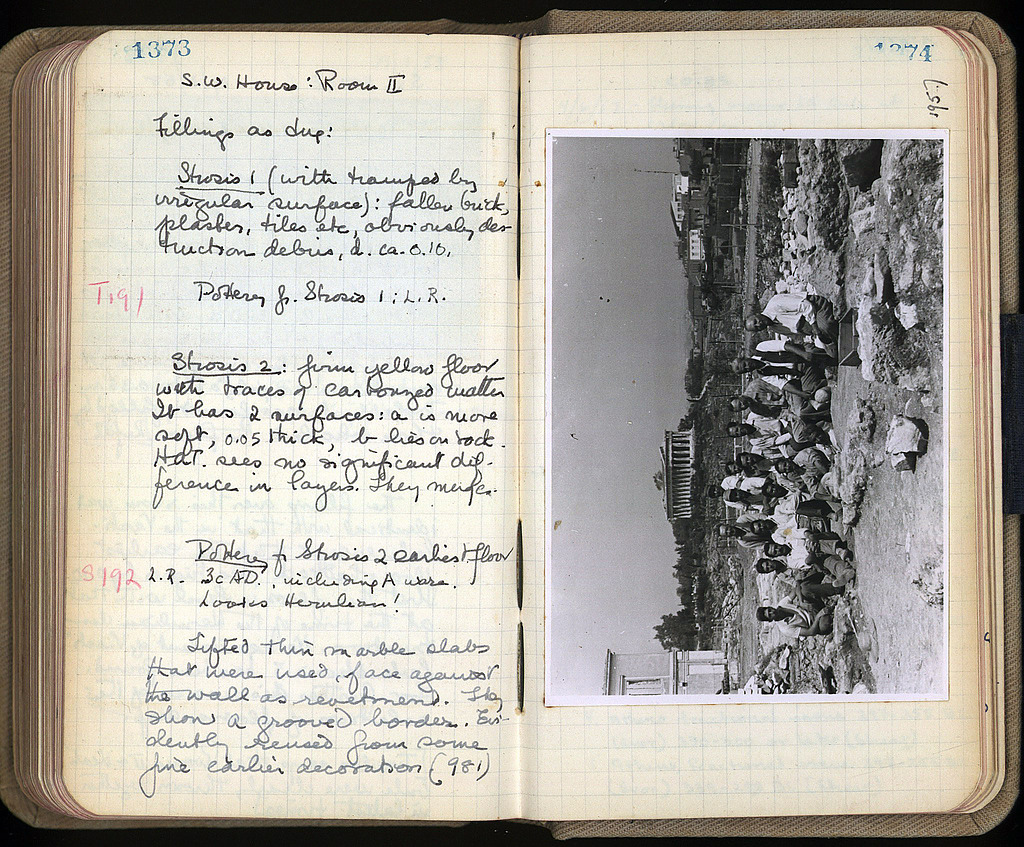 1373
S.W. House: Room II
Fillings as dug:
Strosis 1 (with tramped by
irregular surface): fallen brick,
plaster, tiles etc, obviously des-
truction debris, d. ca. 0.10.
Pottery fr. Strosis 1: L.R.
Strosis 2: firm yellow floor
with traces of carbonized matter
It has 2 surfaces: a is more
soft, 0.05 thick, b lies on rock.
H.A.T. sees no significant dif-
ference in layers. They merge.
Pottery fr Strosis 2 earliest floor
S192 L.R. 3c AD. including A ware.
Looks Herulian!
Lifted thin marble slabs
that were used, face against
the wall as revetment. They
show a grooved border. Evi-
dently reused from some
fine earlier decoration (981)
1374
1957